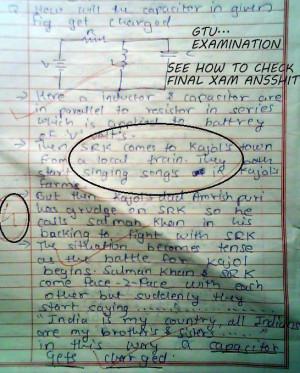 Q How will the capacitor in given
fig get charged
GTU...
EXAMINATION
SEE HOW TO CHECK
FINAL XAM ANSSHIT
R
V
L
C
→ Here a inductor & capacitor are
in parallel to resistor in series
which is applied to battrey
of 'V' volts.
→ Then SRK comes to Kajol's town
from a local train. They both
start singing songs in Kajol's
farms.
→ But then Kajol's dad Amrish puri
has grudge on SRK so he
calls Salman Khan in his
backing to fight with SRK
→ The situation becomes tense
as the battle for Kajol
begins. Salman Khan & SRK
come Face-2-Face with each
other but suddenly they
start saying
"India is my country, all Indians
are my brothers & sisters
in this way a capacitor
gets charged.